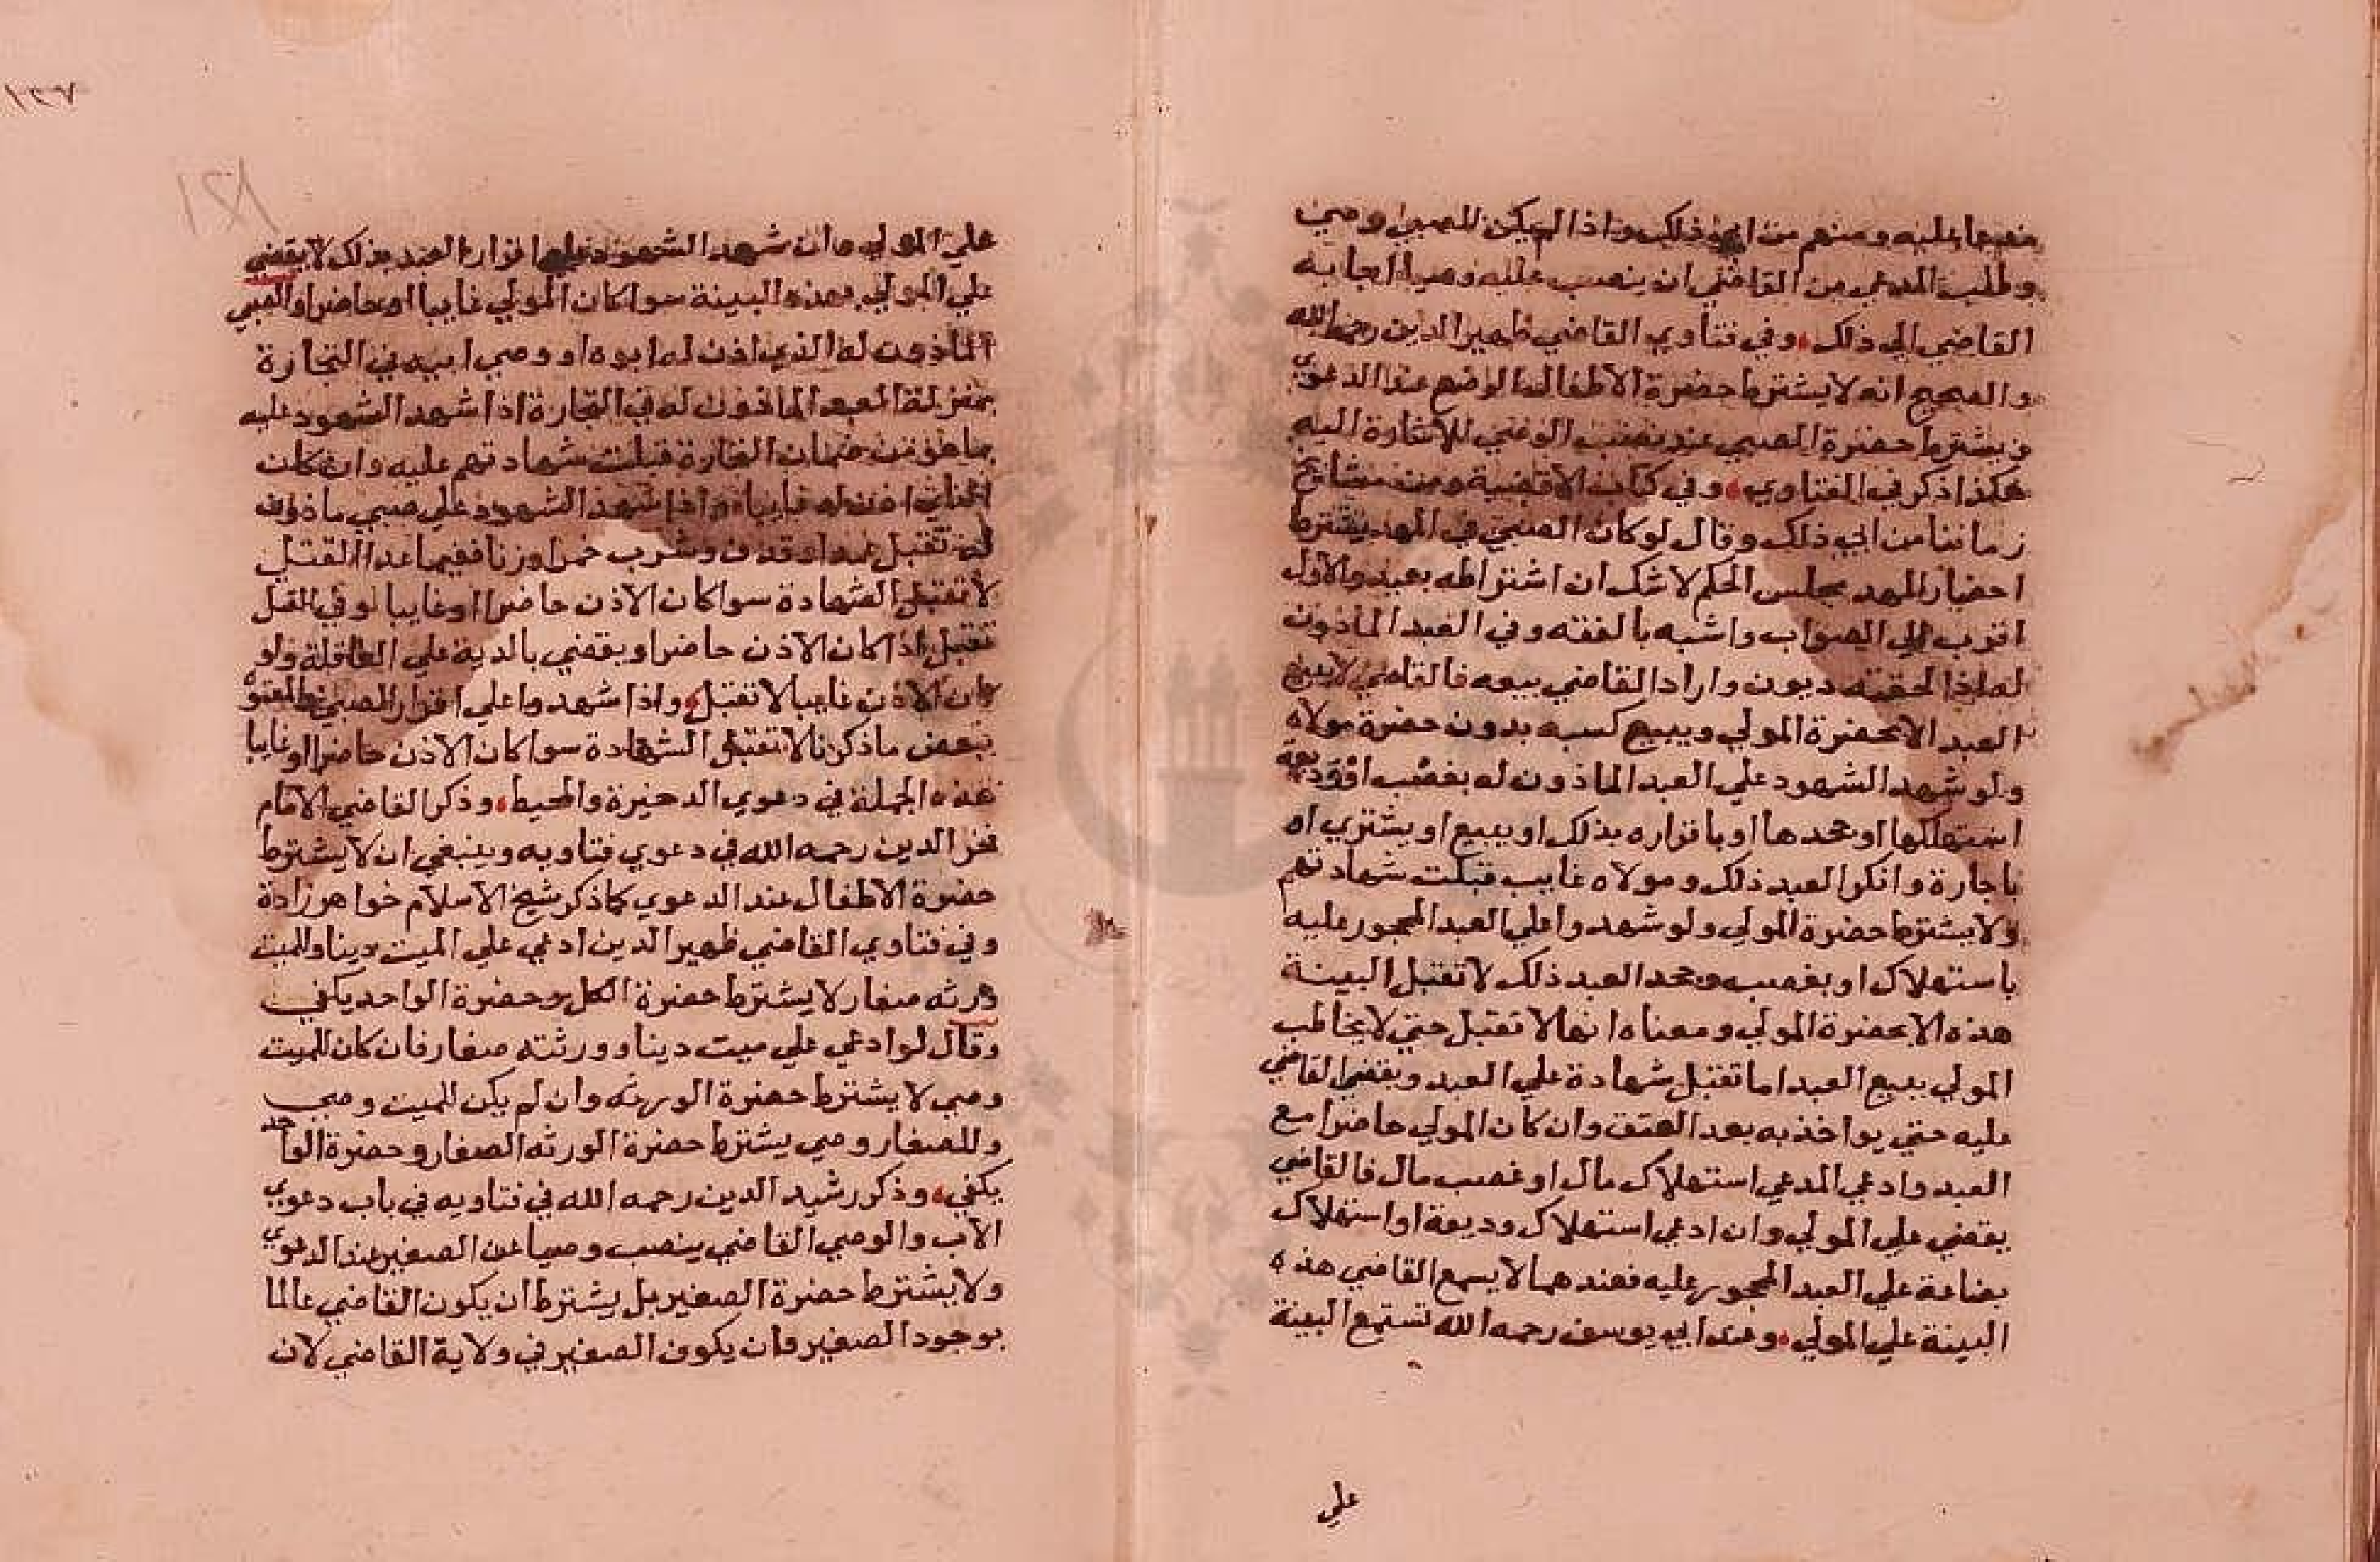 ومنهم من ابى ذلك واذا لم يكن للصبي وصي
وطلب المدعي من القاضي ان ينصب عليه وصيا اجابه
القاضي الي ذلك وفي فتاوي القاضي ظهير الدين رحمه الله
والصحيح انه لا يشترط حضرة الاطفال الرضع عند الدعوي
ويشترط حضرة الصبي عند نصب الوصي للاشارة اليه
هكذا ذكر في الفتاوي وفي كتاب الاقضية ومن مشايخ
زماننا من ابي ذلك وقال لو كان الصبي في المهد يشترط
احضار المهد مجلس الحكم لا شك ان اشتراطه بعيد والاول
اقرب الي الصواب واشبه بالفقه وفي العبد الماذون
له اذا لحقته ديون واراد القاضي بيعه فالقاضي لا يبيع
العبد الا بحضرة المولي ويبيع كسبه بدون حضرة مولاه
ولو شهد الشهود علي العبد الماذون له بغصب او وديعة
استهلكها او جحدها او باقراره بذلك او ببيع او بشتري او
باجارة وانكر العبد ذلك ومولاه غايب قبلت شهادتهم
ولا يشترط حضرة المولي ولو شهدوا علي العبد المحجور عليه
باستهلاك او بغصب وجحد العبد ذلك لا تقبل البينة
هذه الا بحضرة المولي ومعناه انها لا تقبل حتي لا يخاطب
المولي ببيع العبد اما تقبل شهادة علي العبد ويقضي القاضي
عليه حتي يواخذ به بعد العتق وان كان المولي حاضرا مع
العبد وادعي المدعي استهلاك مال او غصب مال فالقاضي
يقضي علي المولي وان ادعي استهلاك وديعة او استهلاك
بضاعة علي العبد المحجور عليه فعندهما لا يسمع القاضي هذه
البينة علي المولي وعند ابي يوسف رحمه الله تستمع البينة
علي
١٣٧
علي المولي وان شهد الشهود علي اقرار العبد بذلك لا يقضي
علي المولي بهذه البينة سوا كان المولي غايبا او حاضرا والصبي
الماذون له الذي اذن له ابوه او وصي ابيه في التجارة
بمنزلة العبد الماذون له في التجارة اذا شهد الشهود عليه
بما هو من ضمان التجارة قبلت شهادتهم عليه وان كان
غايبا واذا شهد الشهود علي صبي ماذون
له بقتل عمد او قذف وشرب خمر او زنا ففيما عدا القتل
لا تقبل الشهادة سوا كان الآذن حاضرا او غايبا وفي القتل
تقبل اذا كان الآذن حاضرا ويقضي بالدية علي العاقلة ولو
كان الآذن غايبا لا تقبل واذا شهدوا علي اقرار الصبي والمعتوه
ببعض ما ذكرنا لا تقبل الشهادة سوا كان الآذن حاضرا او غايبا
هذه الجملة في دعوي الدخيرة والمحيط وذكر القاضي الامام
فخر الدين رحمه الله في دعوي فتاويه وينبغي ان لا يشترط
حضرة الاطفال عند الدعوي كما ذكر شيخ الاسلام خواهر زادة
وفي فتاوي القاضي ظهير الدين ادعي علي الميت دينا وللميت
ورثه صغار لا يشترط حضرة الكل وحضرة الواحد يكفي
وقال لو ادعي علي ميت دينا وورثته صغار فان كان للميت
وصي لا يشترط حضرة الورثه وان لم يكن للميت وصي
وللصغار وصي يشترط حضرة الورثه الصغار وحضرة الواحد
يكفي وذكر رشيد الدين رحمه الله في فتاويه في باب دعوي
الاب والوصي القاضي ينصب وصيا عن الصغير عند الدعوي
ولا يشترط حضرة الصغير بل يشترط ان يكون القاضي عالما
بوجود الصغير وان يكون الصغير في ولاية القاضي لان